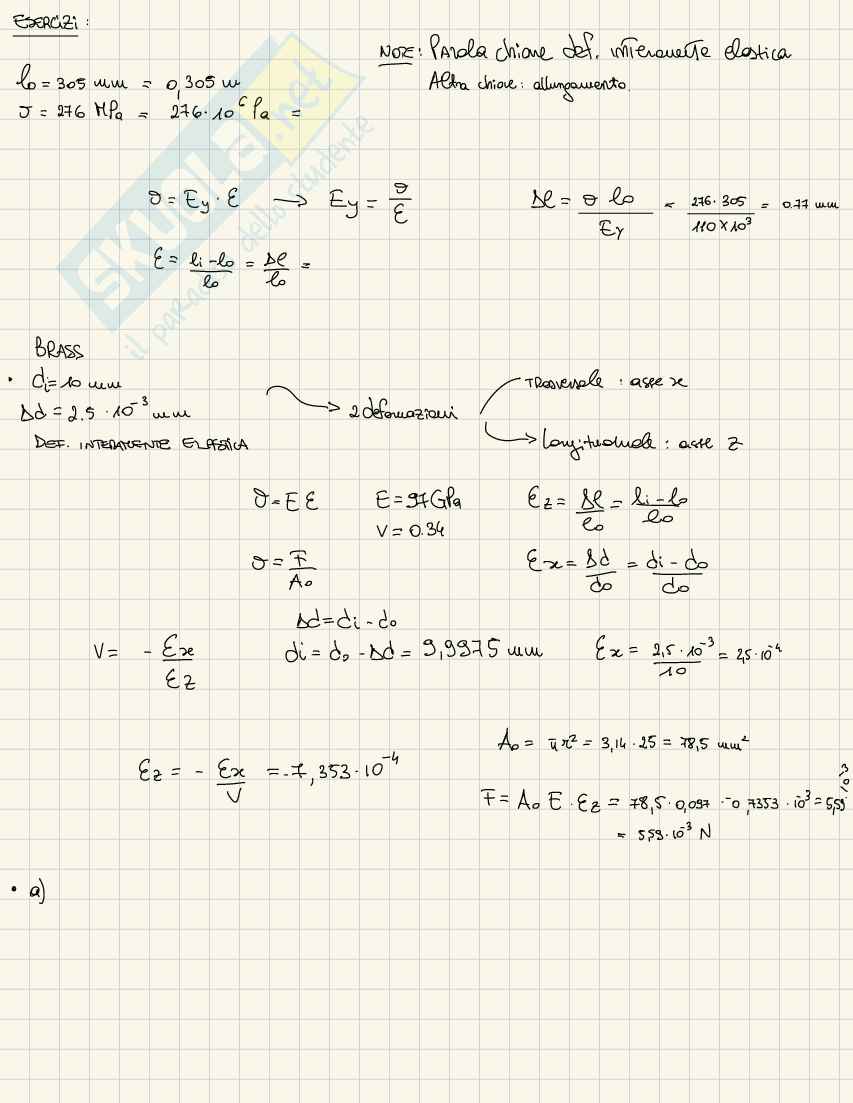 ESERCIZI :
NOTE: PAROLA chiave def. interamente elastica
Altra chiave: allungamento.
l₀ = 305 mm = 0,305 m
σ = 276 MPa = 276·10⁶ Pa =
σ = Ey · ε → Ey = σ/ε
Δl = σ l₀/Ey = 276·305/110×10³ = 0.77 mm
ε = li-l₀/l₀ = Δl/l₀ =
SKUOLA.net
il paradiso dello studente
BRASS
• di = 10 mm
Δd = 2.5 · 10⁻³ mm
DEF. INTERAMENTE ELASTICA
→ 2 deformazioni
TRASVERSALE : asse x
longitudinale : asse z
σ = E ε
E = 97 GPa
ν = 0.34
εz = Δl/l₀ = li-l₀/l₀
σ = F/A₀
εx = Δd/d₀ = di - d₀/d₀
Δd = di - d₀
ν = - εx/εz
di = d₀ - Δd = 9,9975 mm
εx = 2,5 · 10⁻³/10 = 2,5·10⁻⁴
A₀ = πr² = 3,14 · 25 = 78,5 mm²
εz = - εx/ν = -7,353·10⁻⁴
F = A₀ E · εz = 78,5 · 0,097 · -0,7353 · 10⁻³ = 5,59 · 10⁻³
= 5,59·10⁻³ N
• a)